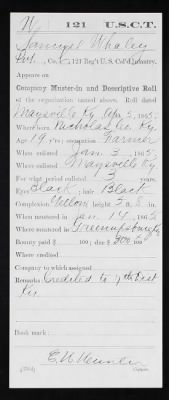 W 121 U.S.C.T.
Samuel Whaley
Pvt., Co. , 121 Reg't U. S. Col'd Infantry.
Appears on
Company Muster-in and Descriptive Roll
of the organization named above. Roll dated
Maysville Ky, 5, 1865.
Where born Nicholas Co. Ky.
Age 19 y'rs; occupation Farmer
When enlisted Jan. 3, 1865.
Where enlisted Maysville Ky
For what period enlisted 3 years.
Eyes Black; hair Black
Complexion Yellow; height 5 ft. 5 in.
When mustered in Jan. 14, 1865
Where mustered in
Bounty paid $ 100; due $ 300 100
Where credited
Company to which assigned
Remarks: Credited to 9th Dist
Ky.
Book mark:
Copyist.